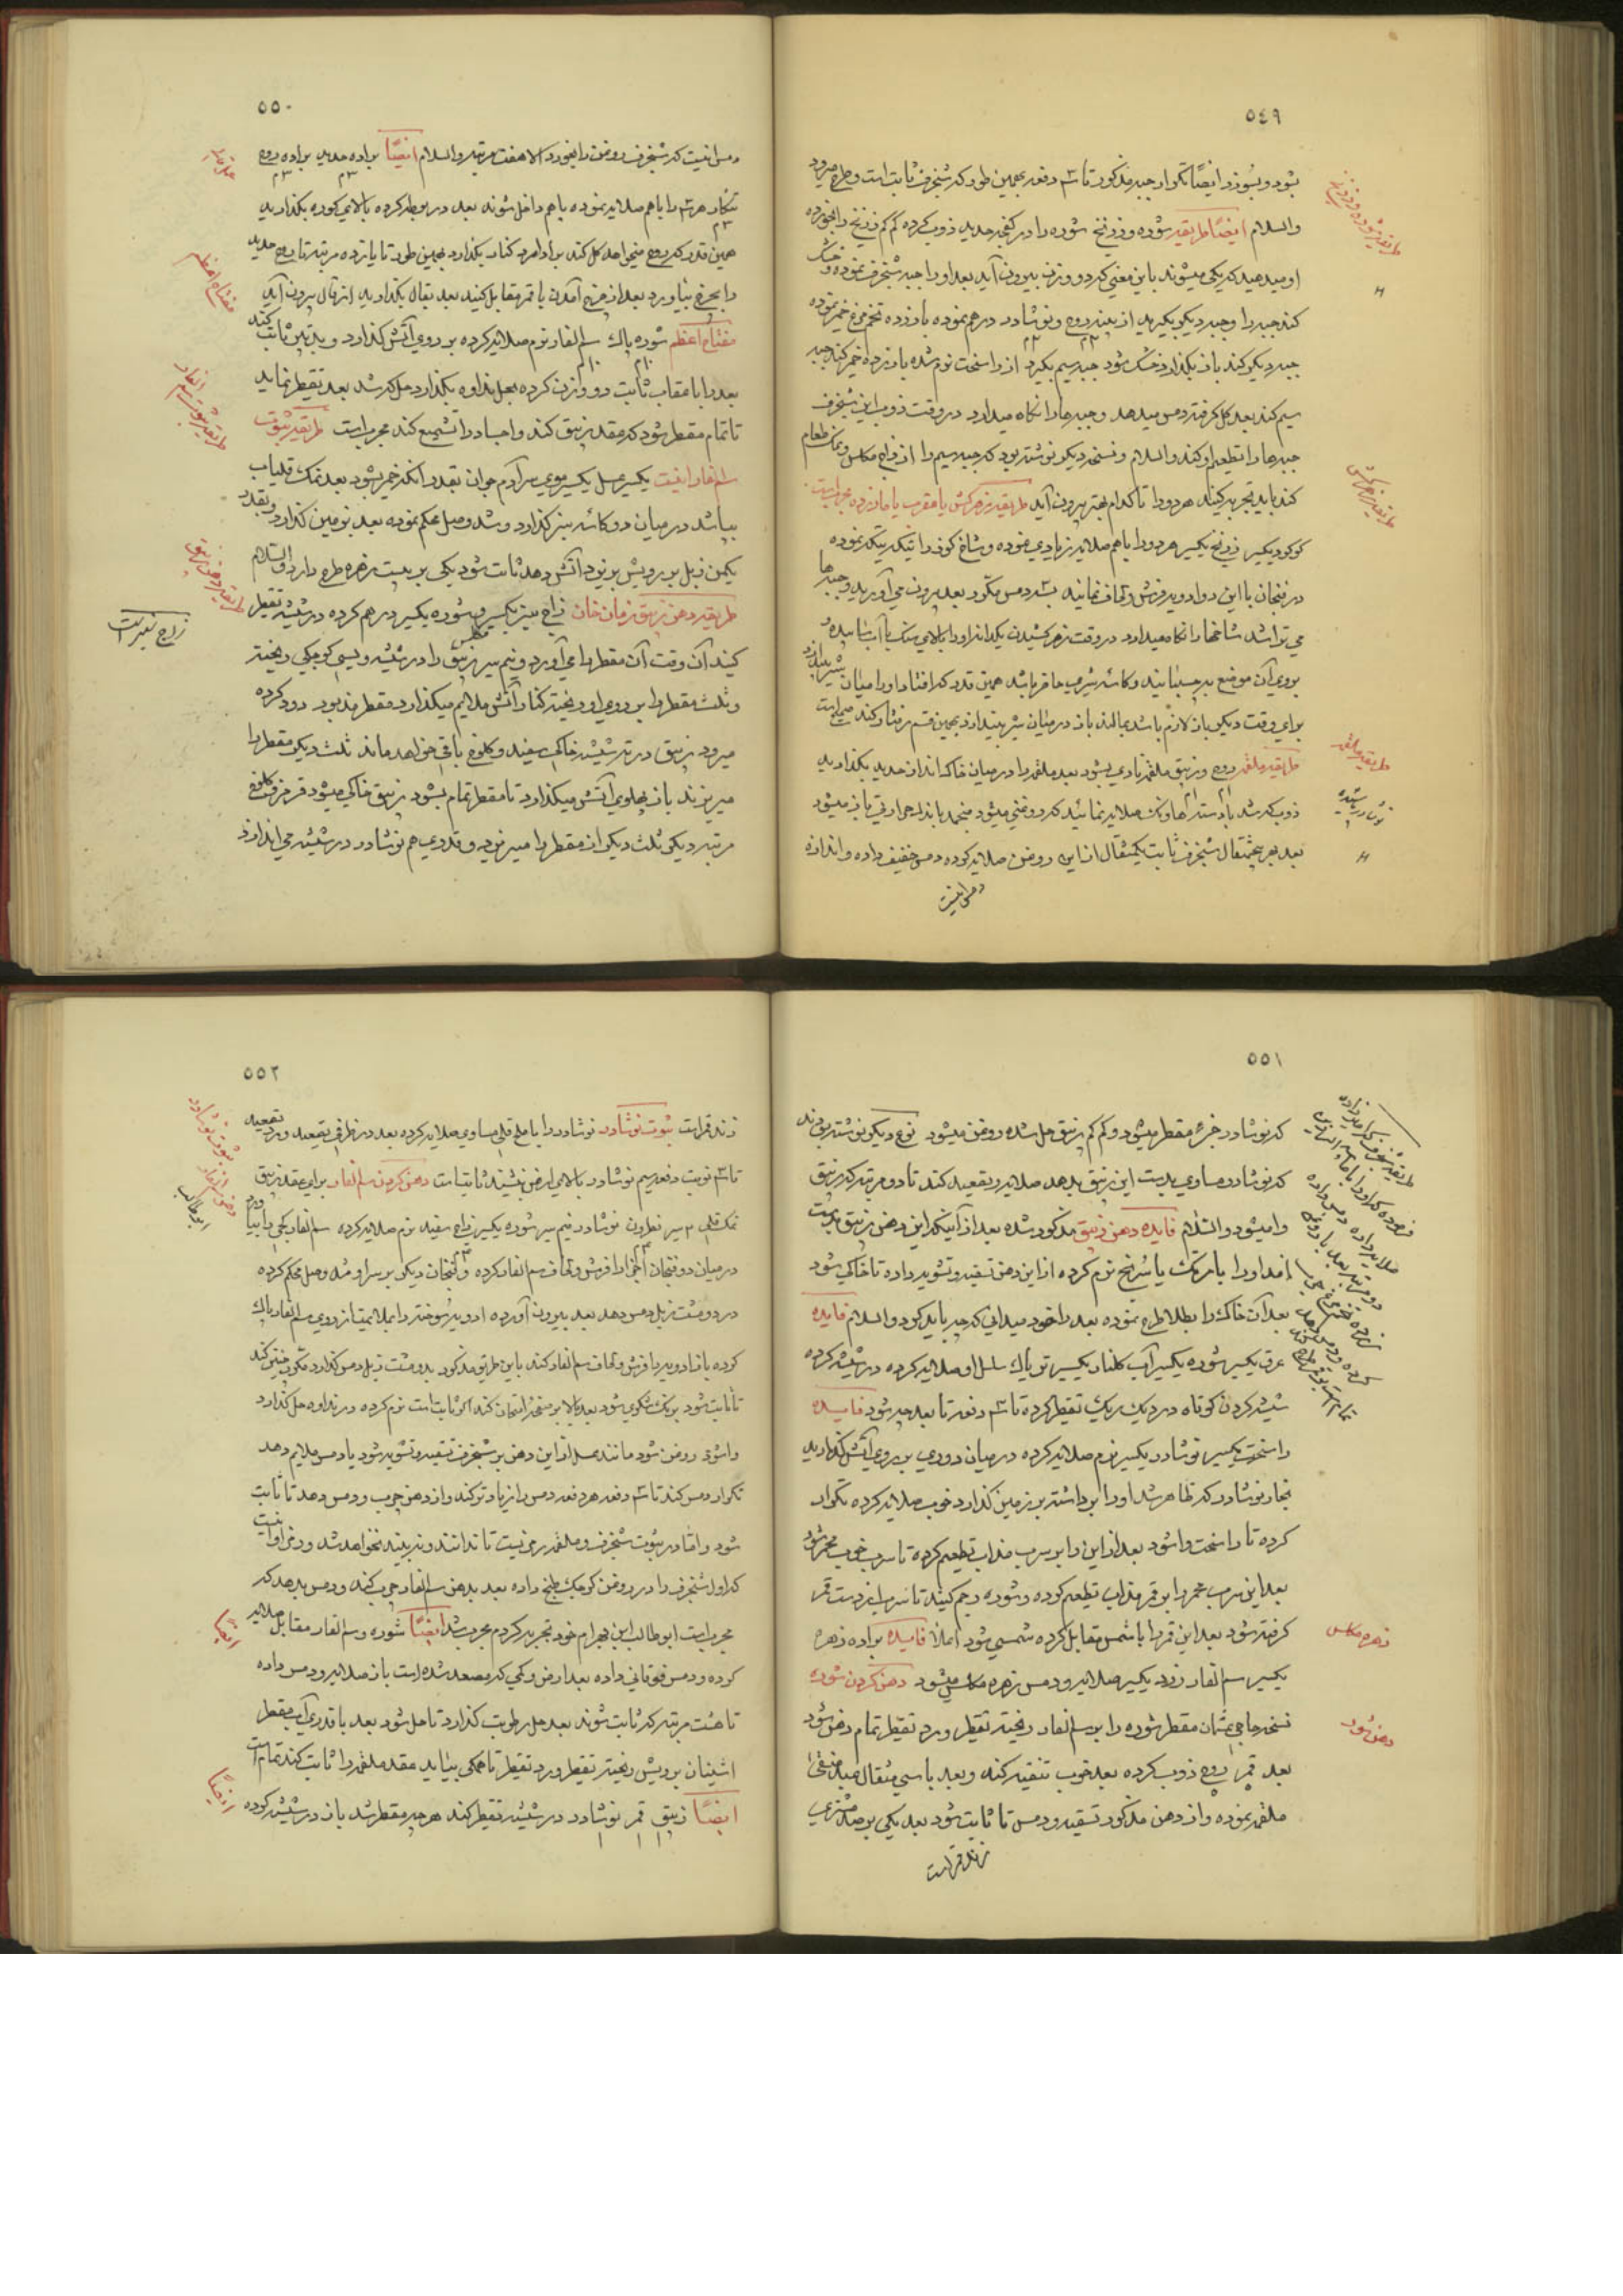 ٥٤٩
بشود و بسوزد ایضًا تکرار جبه مذکور تا ٣ دفعه بهمین طور که شنجرف ثابت است و طرح میرود
والسلام ایضًا طریقه شوره و زرنیخ شوره را در کفچه حدید ذوب کرده کم کم زرنیخ را بخورده
او میدهید که یکی میشوند باین معنی که دو وزن بیرون آید بعد او را جبه شنجرف نموده و خشک
کند جبه را و جبه دیگر بگیرید از بیضه روح و نوشادر درهم نموده با زرده تخم مرغ خمیر نموده
جبه دیگر کند باز بگذارد خشک شود جبه سیم بگیرد از راسخت نرم شده با زرده خمیر کند جبه
سیم کند بعد کل گرفته دمس میدهد و جبه ها را نگاه میدارد در وقت ذوب این شنجرف
جبه ها را تطعیم او کند والسلام و نسخه دیگر نوشته بود که جبه سیم را از زاج مکلس و نمک طعام
کند باید تجربه کنید هر دو را تا کدام بهتر بیرون آید طریقه زهرکش یا عقرب یا مار زده مجرب است
کوکرد یکسیر زرنیخ یکسیر هر دو را با هم صلایه زیادی نموده و شاخ کوزن را تیکه تیکه نموده
در فنجان با این دوا دو یه فرش و لحاف نمایند بسه دمس مکرر بعد بیرون می آورید و جبه ها
می تراشد شاخها را نگاه میدارد در وقت زهر کشیدن یکدانه او را بالای سنک با آب سائیده
بروی آن موضع بچسبانید و کاسه شیر هم حاضر باشد همین قدر که افتاد او را میان شیر بیندازد
برای وقت دیگر باز لازم باشد بمالند باز در میان شیر بیندازد بهمین قسم رفتار کند صحیح است
طریقه ملغمه روح و زیبق ملغمه زیادی بشود بعد ملغمه را در میان خاک انداز حدید بگذارید
ذوب که شد با دسته هاونک صلایه نمائید که روغنی میشود منجمد باندک حرارتی باز میشود
بعد بهر پنج مثقال شنجرف ثابت یکمثقال از این روغن صلایه کرده دمس خفیف داده و اندازه
دمس اینست
طریقه شوره و زرنیخ
طریقه زهرکش
طریقه ملغمه
٥٥٠
دمس اینست که شنجرف روغن را بخورد الا هفت مرتبه والسلام ایضًا براده حدید براده روح
تنکار هر سه را با هم صلایه نموده با هم داخل شوند بعد در بوطه کرده بالای کوره بگذارید
همین قدر که روح میخواهد کل کند بر آرد کنار بگذارد بهمین طور تا یازده مرتبه تا روح حدید
را بچرخ بیاورد بعد از چرخ آمدن با قمر مقابل کنید بعد بقال بگذارید از قال بیرون آید
مفتاح اعظم شوره پاک سم الفار نرم صلایه کرده بر روی آتش گذارد و بدین ثابت کند
بعد را با عقاب ثابت دو وازن کرده بحل نداوه بگذارد حل که شد بعد تقطیر نماید
تا تمام مقطر شود که عقد زیبق کند و اجساد را تشمیع کند مجرب است طریقه ثبوت
سم الفار اینست یکسیر عسل یکسیر موی سر آدم جوان بقدر آنکه خمیر شود بعد نمک قلیاب
بپاشد در میان دو کاسه سبز گذارد و سد وصل محکم نموده بعد بزمین گذارد و بقدر
یکمن زبل بر رویش بریزد آتش دهد ثابت شود یکی بر بیست زهره طرح دارد والسلام
طریقه دهن زیبق زمان خان زاج سبز یکسیر و شوره یکسیر درهم کرده در شیشه تقطیر
کنید آن وقت آن مقطر را می آورد و نیم سیر زیبق را در شیشه ویسی کوچکی ریخته
و ثلث مقطر را بر روی او ریخته کنار آتش ملایم میگذارد مقطر مذبور دود کرده
میرود زیبق در ته شیشه خاکی سفید و کلوخ باقی خواهد ماند ثلث دیگر مقطر را
میریزند باز پهلوی آتش میگذارد تا مقطر تمام بشود زیبق خاکی میشود قرمز کلوخ
مرتبه دیگر ثلث دیگر از مقطر را میریزد و قدری هم نوشادر در شیشه می اندازد
مفتاح اعظم
طریقه ثبوت سم الفار
طریقه دهن زیبق
٥٥١
که نوشادر خرده مقطر میشود و کم کم زیبق حل شده روغن میشود نوع دیگر نوشته بودند
که نوشادر مساوی بدست این زیبق بدهد صلایه و تصعید کند تا دو مرتبه که زیبق
وا میشود والسلام فایده دهن زیبق مذکور شده بعد از آنکه این دهن زیبق بدست
آمد او را با مرتک یا سرنج نرم کرده از این دهن تسقیه و تشویه داده تا خاکی شود
بعد آن خاک را بطلا طرح نموده بعد را خود میدانی که چه باید کرد والسلام فایده
عرق یکسیر شوره یکسیر آب کلنار یکسیر توپاک سلسل او صلایه کرده در شیشه کرده
شیشه کردن کوتاه در دیک ریک تقطیر کرده تا ٣ دفعه تا بعد چه شود فایده
راسخت یکسیر نوشادر یکسیر نرم صلایه کرده در میان دوری بر روی آتش گذارید
بخار نوشادر که ظاهر شد او را برداشته بر زمین گذارد خوب صلایه کرده تکرار
کرده تا راسخت وا شود بعد از این را بر سرب مذاب تطعیم کرده تا سرب خوب محمر شود
بعد این سرب محمر را بر قمر مذاب تطعیم کرده و شوره رجم کنید تا سرب از دست قمر
گرفته شود بعد این قمر را با شمس مقابل کرده شمسی شود اعلا فایده براده زهره
یکسیر سم الفار زرد یکسیر صلایه و دمس زهره مکلس میشود دهن کردن شوره
نسخه حاجی عثمان مقطر شوره را بر سم الفار ریخته تقطیر و رد تقطیر تمام دهن شود
بعد قمر روح ذوب کرده بعد خوب تنقیه کند و بعد با سی مثقال عبد منقی
ملغمه نموده و از دهن مذکور تسقیه و دمس تا ثابت شود بعد یکی بر صد مشتری
زند قمر است
زهره مکلس
دهن شوره
٥٥٢
زند قمر است ثبوت نوشادر نوشادر را با ملح قلی مساوی صلایه کرده بعد در ظرفی تصعید و رد تصعید
تا ٣ نوبت دفعه سیم نوشادر بالای ارض بنشیند ثابت است دهن کردن سم الفار برای عقد زیبق
نمک قلی ٣ سیر نطرون نوشادر نیم سیر شوره یکسیر زاج سفید نرم صلایه کرده سم الفار یکی را بیاورد
در میان دو فنجان اجزا را فرش و لحاف سم الفار کرده و فنجان دیگر بر سر او سد وصل محکم کرده
در دو مشت زبل دمس دهد بعد بیرون آورده ادویه سوخته را بملایمت از روی سم الفار پاک
کرده باز ادویه را فرش و لحاف سم الفار کند باین طریق مذکور بدو مشت زبل دمس گذارد مکرر چنین کند
تا ثابت شود برنک شکری شود بعد بالا بر صفحه امتحان کند اگر ثابت است نرم کرده در نداوه حل گذارد
وا شود روغن شود مانند عسل از این دهن بر شنجرف تسقیه و تشویه شود یا دمس ملایم دهد
تکرار دمس کند تا ٣ دفعه هر دفعه دمس را زیادتر کند و از دهن چرب و دمس دهد تا ثابت
شود و اما در ثبوت شنجرف و ملغمه رمزیست تا ندانند و نبینند نخواهد شد و رمز او اینست
که اول شنجرف را در روغن کوچک طبخ داده بعد بدهن سم الفار چرب کند و دمس بدهد که
مجرب است ابوطالب ابن بهرام خود تجربه کردم مجرب شد ایضًا شوره و سم الفار مقابل صلایه
کرده و دمس فوقانی داده بعد ارض و کمی که مصعد شده است باز صلایه و دمس داده
تا هشت مرتبه که ثابت شوند بعد حل رطوبت گذارد تا حل شود بعد با قدری آب مقطر
اشنان برویش ریخته تقطیر و رد تقطیر تا همکی بیاید عقد ملغمه را ثابت کند تمام است
ایضًا زیبق قمر نوشادر در شیشه تقطیر کند هر چه مقطر شد باز در شیشه کرده
ثبوت نوشادر
دهن سم الفار
ابوطالب
ایضًا
ایضًا